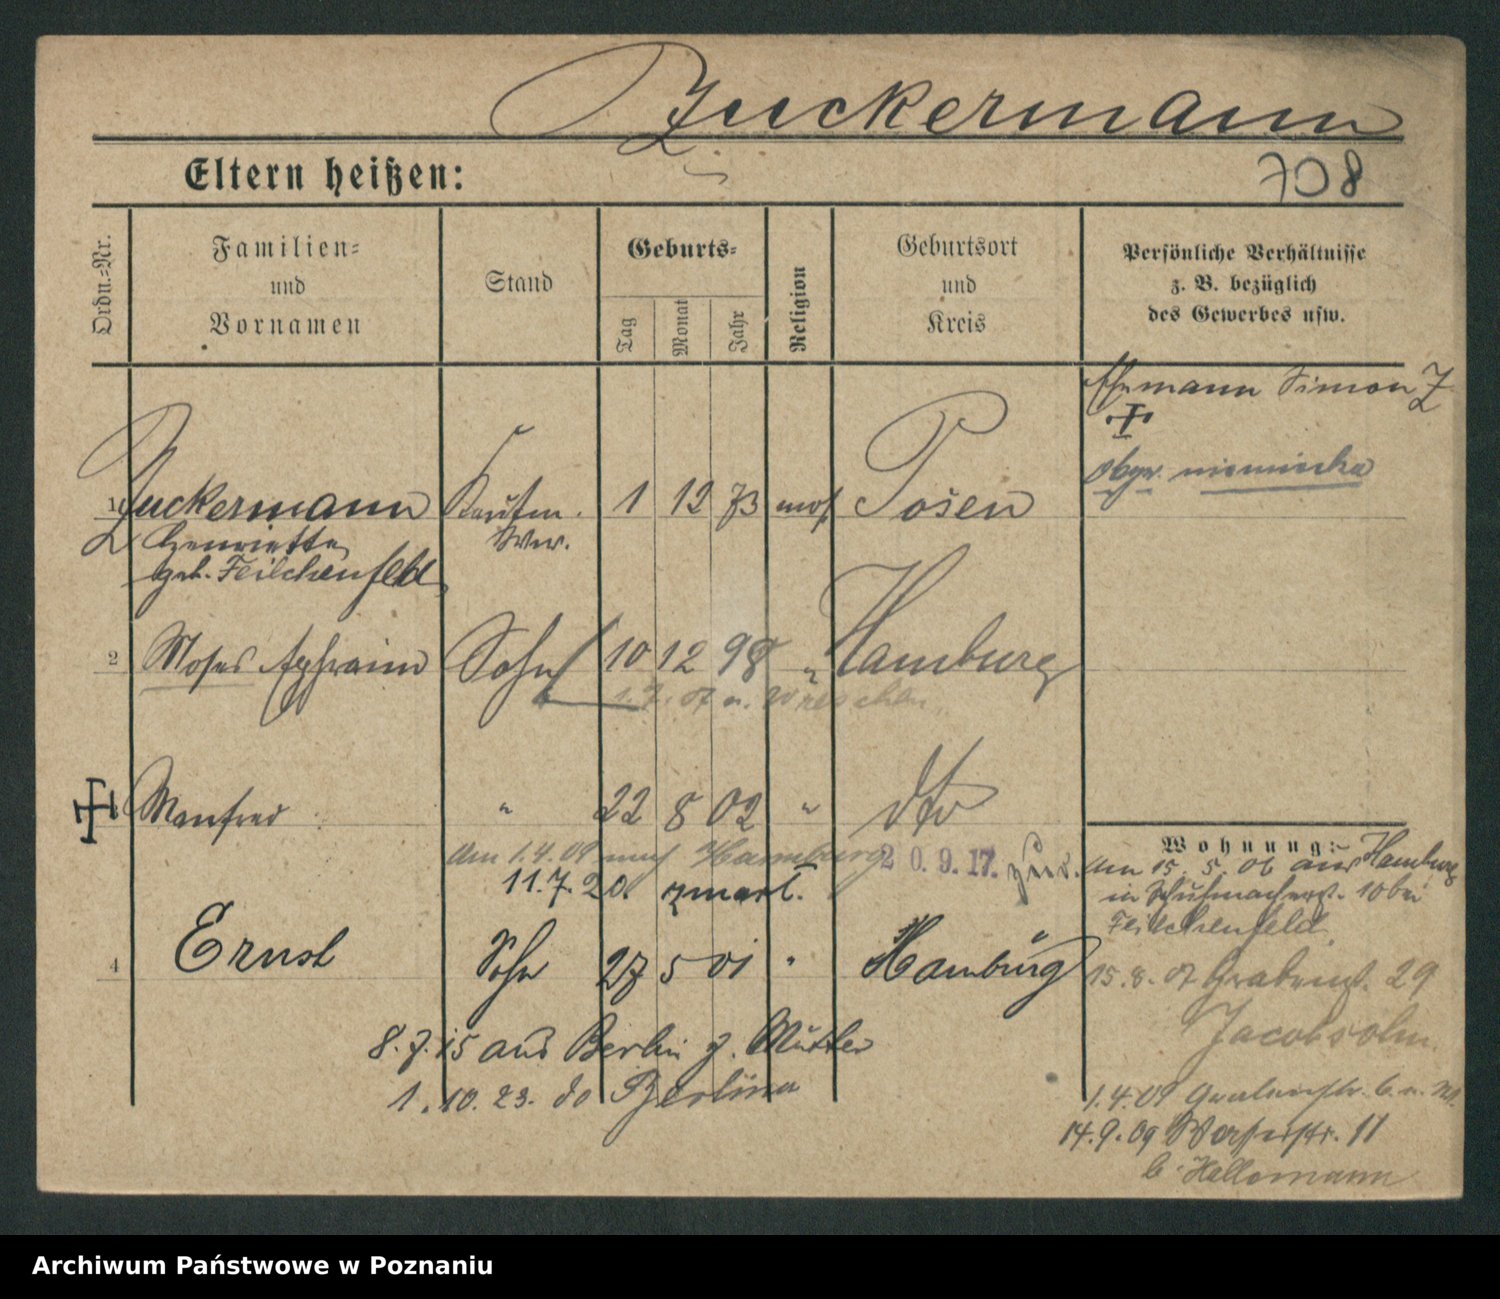 Zuckermann
Eltern heißen:
708
Ordn.-Nr.
Familien-
und
Vornamen
Stand
Geburts-
Tag
Monat
Jahr
Religion
Geburtsort
und
Kreis
Persönliche Verhältnisse
z. B. bezüglich
des Gewerbes usw.
Ehemann Simon Z
obyw. niemiecka
1 Zuckermann Kaufm. 1 12 73 mos. Posen
Henriette Wwe.
geb. Feilchenfeld
2 Moses Ephraim Sohn 10 12 98 " Hamburg
1.7.07 n. Wreschen
Manfred " 22 8 02 " dto
am 1.4.09 nach Hamburg 20.9.17. zur.
11.7.20 zmarł.
4 Ernst Sohn 27 5 01 " Hamburg
8.7.15 aus Berlin z. Mutter
1.10.23. do Berlina
Wohnung:
am 15. 5. 06 aus Hamburg
in Schuhmacherst. 10 bei
Feilchenfeld
15.8.07 Grabenst. 29
Jacobsohn
1.4.09
14.9.09 Wasserstr. 11
b. Hellomann
Archiwum Państwowe w Poznaniu